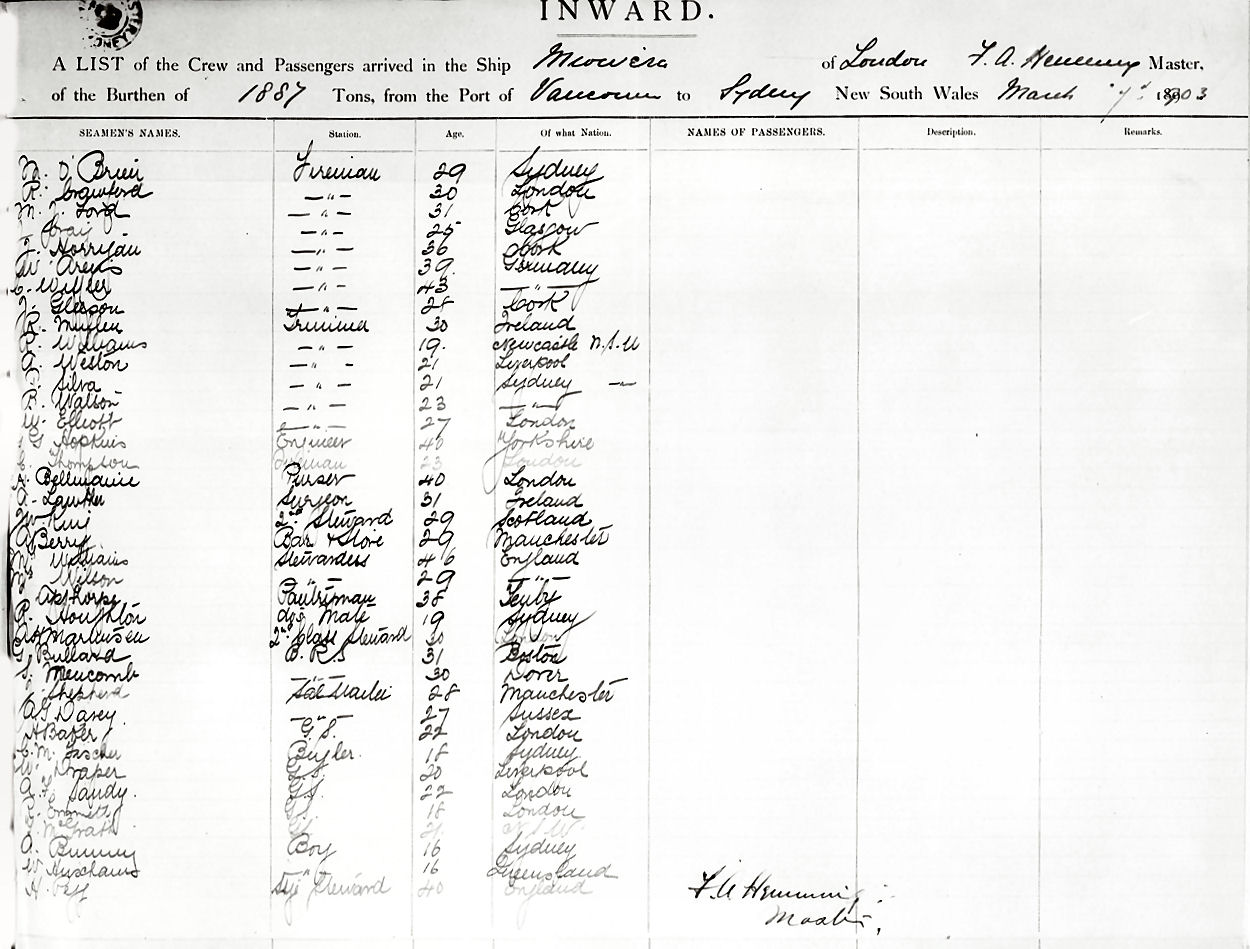 INWARD.
A LIST of the Crew and Passengers arrived in the Ship Miowera of London F. A. Hemming Master,
of the Burthen of 1887 Tons, from the Port of Vancouver to Sydney New South Wales March 7th 1903
SEAMEN'S NAMES. Station. Age. Of what Nation. NAMES OF PASSENGERS. Description. Remarks.
M. O'Brien Fireman 29 Sydney
R. Crawford — " — 30 London
M. J. Ford — " — 31 Cork
Craig — " — 25 Glasgow
J. Horrigan — " — 36 Cork
W. Arens — " — 39. Germany
C. — " — 43 — " —
J. Gleeson — " — 28 Cork
R. Mullen Trimmer 30 Ireland
R. Williams — " — 19. Newcastle N.S.W
A. Weston — " — 21 Liverpool
Silva — " — 21 Sydney — " —
R. Watson — " — 23 — " —
W. Elliott — " — 27 London
G Hopkins Engineer 40 Yorkshire
C. Thompson Fireman 23 London
Bellmaine Purser 40 London
A. Lawther Surgeon 31 Ireland
W. King 2nd Steward 29 Scotland
Berry Bar & Store 29 Manchester
Mrs Williams Stewardess 46 England
Wilson — " — 29 — " —
Apthorpe Pantryman 38 Tenby
R. Houghton do Mate 19 Sydney
Martensen 2nd Class Steward 30 London
G Bullard B. R. S 31 Boston
S. Meucomb — " — 30 Dover
Shepherd 28 Manchester
A G Davey — " — 27 Sussex
H Baker G. S. 22 London
C. M. Fischer Bugler. 18 Sydney
W. Draper G. S. 20 Liverpool
A. E Sandy. G. S. 22 London
R. Emmett G. S. 18 London
McGrath 21 N.S.W.
A. Boy 16 Sydney
W. — " — 16 Queensland
H. Steward 40 England
F. A Hemming
Master.